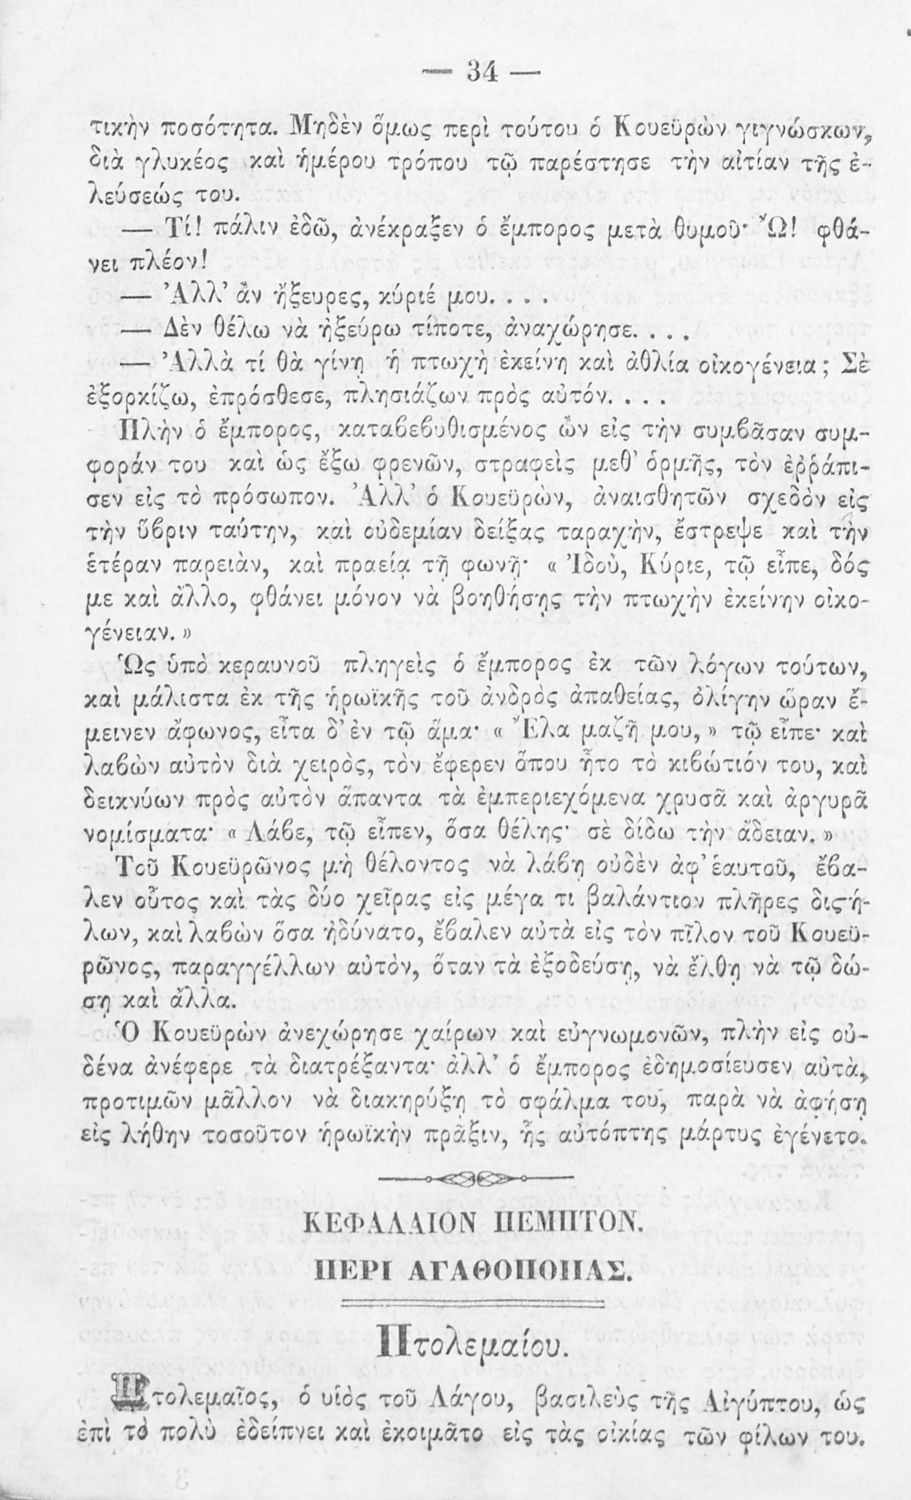 — 34 —
τικὴν ποσότητα. Μηδὲν ὅμως περὶ τούτου ὁ Κουεϋρὼν γιγνώσκων,
διὰ γλυκέος καὶ ἡμέρου τρόπου τῷ παρέστησε τὴν αἰτίαν τῆς ἐ-
λεύσεώς του.
— Τί! πάλιν ἐδῶ, ἀνέκραξεν ὁ ἔμπορος μετὰ θυμοῦ· Ὤ! φθά-
νει πλέον!
— Ἀλλ' ἂν ἤξευρες, κύριέ μου. . . .
— Δὲν θέλω νὰ ἠξεύρω τίποτε, ἀναχώρησε. . . .
— Ἀλλὰ τί θὰ γίνῃ ἡ πτωχὴ ἐκείνη καὶ ἀθλία οἰκογένεια; Σὲ
ἐξορκίζω, ἐπρόσθεσε, πλησιάζων πρὸς αὐτόν. . . .
Πλὴν ὁ ἔμπορος, καταβεβυθισμένος ὢν εἰς τὴν συμβᾶσαν συμ-
φοράν του καὶ ὡς ἔξω φρενῶν, στραφεὶς μεθ' ὁρμῆς, τὸν ἐῤῥάπι-
σεν εἰς τὸ πρόσωπον. Ἀλλ' ὁ Κουεϋρὼν, ἀναισθητῶν σχεδὸν εἰς
τὴν ὕβριν ταύτην, καὶ οὐδεμίαν δείξας ταραχὴν, ἔστρεψε καὶ τὴν
ἑτέραν παρειὰν, καὶ πραείᾳ τῇ φωνῇ· « Ἰδοὺ, Κύριε, τῷ εἶπε, δός
με καὶ ἄλλο, φθάνει μόνον νὰ βοηθήσῃς τὴν πτωχὴν ἐκείνην οἰκο-
γένειαν. »
Ὡς ὑπὸ κεραυνοῦ πληγεὶς ὁ ἔμπορος ἐκ τῶν λόγων τούτων,
καὶ μάλιστα ἐκ τῆς ἡρωϊκῆς τοῦ ἀνδρὸς ἀπαθείας, ὀλίγην ὥραν ἔ-
μεινεν ἄφωνος, εἶτα δ' ἐν τῷ ἅμα· « Ἔλα μαζῆ μου, » τῷ εἶπε· καὶ
λαβὼν αὐτὸν διὰ χειρὸς, τὸν ἔφερεν ὅπου ἦτο τὸ κιβώτιόν του, καὶ
δεικνύων πρὸς αὐτὸν ἅπαντα τὰ ἐμπεριεχόμενα χρυσᾶ καὶ ἀργυρᾶ
νομίσματα· « Λάβε, τῷ εἶπεν, ὅσα θέλῃς· σὲ δίδω τὴν ἄδειαν. »
Τοῦ Κουεϋρῶνος μὴ θέλοντος νὰ λάβῃ οὐδὲν ἀφ' ἑαυτοῦ, ἔβα-
λεν οὗτος καὶ τὰς δύο χεῖρας εἰς μέγα τι βαλάντιον πλῆρες διστή-
λων, καὶ λαβὼν ὅσα ἠδύνατο, ἔβαλεν αὐτὰ εἰς τὸν πῖλον τοῦ Κουεϋ-
ρῶνος, παραγγέλλων αὐτὸν, ὅταν τὰ ἐξοδεύσῃ, νὰ ἔλθῃ νὰ τῷ δώ-
σῃ καὶ ἄλλα.
Ὁ Κουεϋρὼν ἀνεχώρησε χαίρων καὶ εὐγνωμονῶν, πλὴν εἰς οὐ-
δένα ἀνέφερε τὰ διατρέξαντα· ἀλλ' ὁ ἔμπορος ἐδημοσίευσεν αὐτὰ,
προτιμῶν μᾶλλον νὰ διακηρύξῃ τὸ σφάλμα του, παρὰ νὰ ἀφήσῃ
εἰς λήθην τοσοῦτον ἡρωϊκὴν πρᾶξιν, ἧς αὐτόπτης μάρτυς ἐγένετο.
ΚΕΦΑΛΑΙΟΝ ΠΕΜΠΤΟΝ.
ΠΕΡΙ ΑΓΑΘΟΠΟΙΙΑΣ.
Πτολεμαίου.
Πτολεμαῖος, ὁ υἱὸς τοῦ Λάγου, βασιλεὺς τῆς Αἰγύπτου, ὡς
ἐπὶ τὸ πολὺ ἐδείπνει καὶ ἐκοιμᾶτο εἰς τὰς οἰκίας τῶν φίλων του.